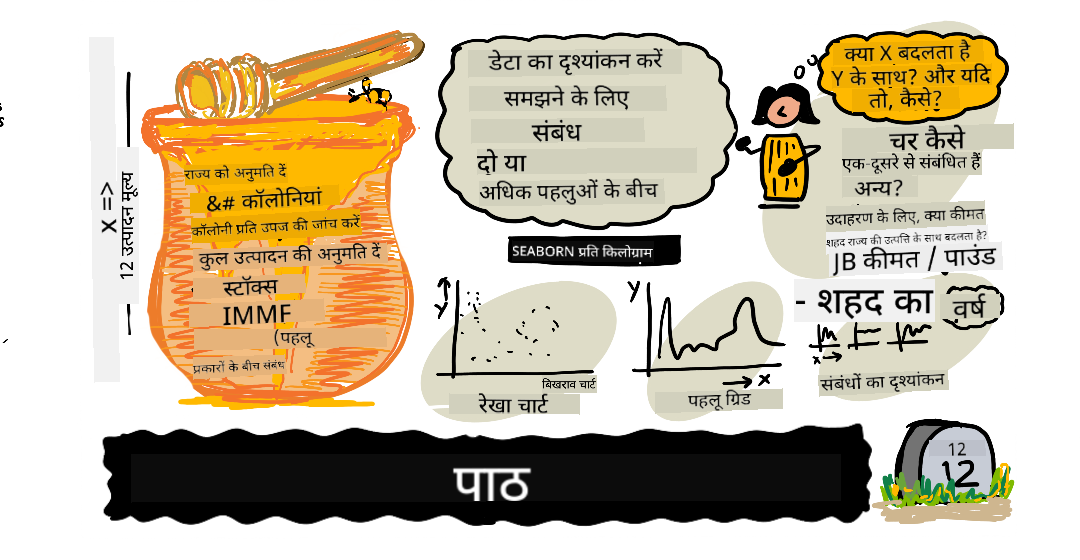 X =>
12 उत्पादन मूल्य
राज्य को अनुमति दें
&# कॉलोनियां
कॉलोनी प्रति उपज की जांच करें
कुल उत्पादन की अनुमति दें
स्टॉक्स
IMMF
(पहलू
प्रकारों के बीच संबंध
डेटा का दृश्यांकन करें
समझने के लिए
संबंध
दो या
अधिक पहलुओं के बीच
SEABORN प्रति किलोग्राम
Y
बिखराव चार्ट
रेखा चार्ट
Y
X
पहलू ग्रिड
क्या X बदलता है
Y के साथ? और यदि
तो, कैसे?
चर कैसे
एक-दूसरे से संबंधित हैं
अन्य?
उदाहरण के लिए, क्या कीमत
शहद राज्य की उत्पत्ति के साथ बदलता है?
JB कीमत / पाउंड
- शहद का
वर्ष
X
संबंधों का दृश्यांकन
पाठ
12
12